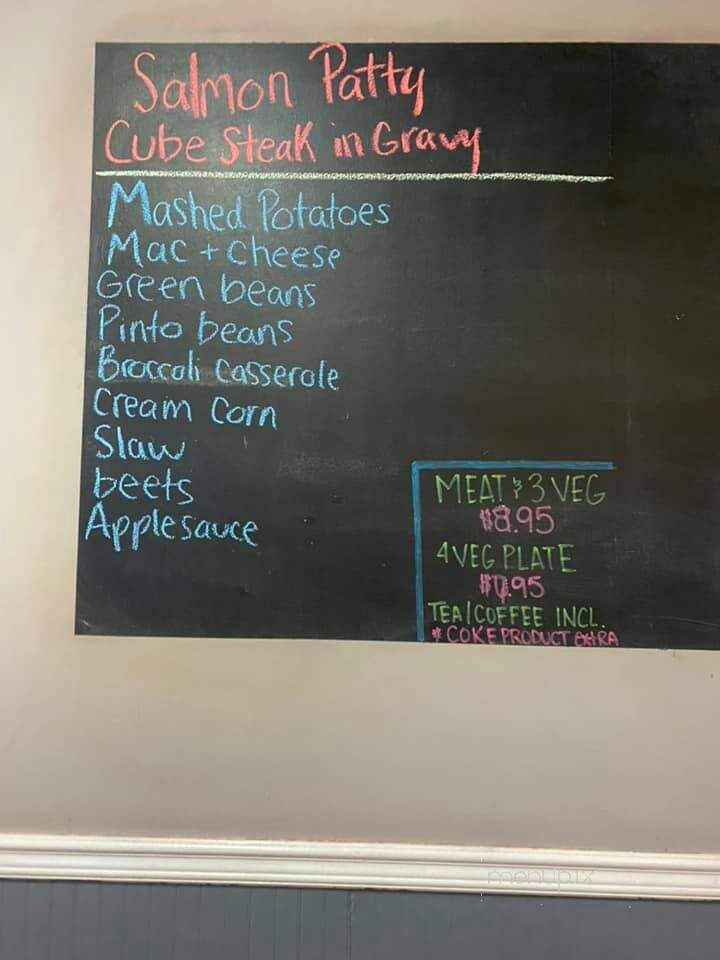 Salmon Patty
Cube Steak in Gravy
Mashed Potatoes
Mac + cheese
Green beans
Pinto beans
Broccoli Casserole
Cream Corn
Slaw
beets
Applesauce
MEAT & 3 VEG
$8.95
4 VEG PLATE
TEA/COFFEE INCL.
* COKE PRODUCT EXTRA
menupix